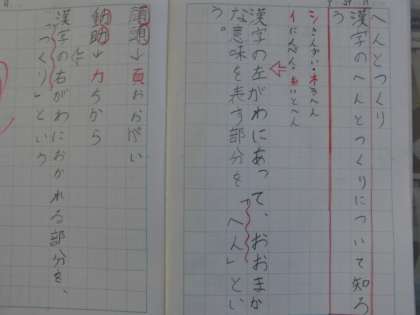 へんとつくり
漢字のへんとつくりについて知ろ
う
シ さんずい・木 きへん
イ にんべん・糸 いとへん
漢字の左がわにあって、おおまか
な意味を表す部分を「へん」とい
う。
順頭→頁おおがい
動助→力ちから
漢字の右がわにおかれる部分を、
「つくり」という